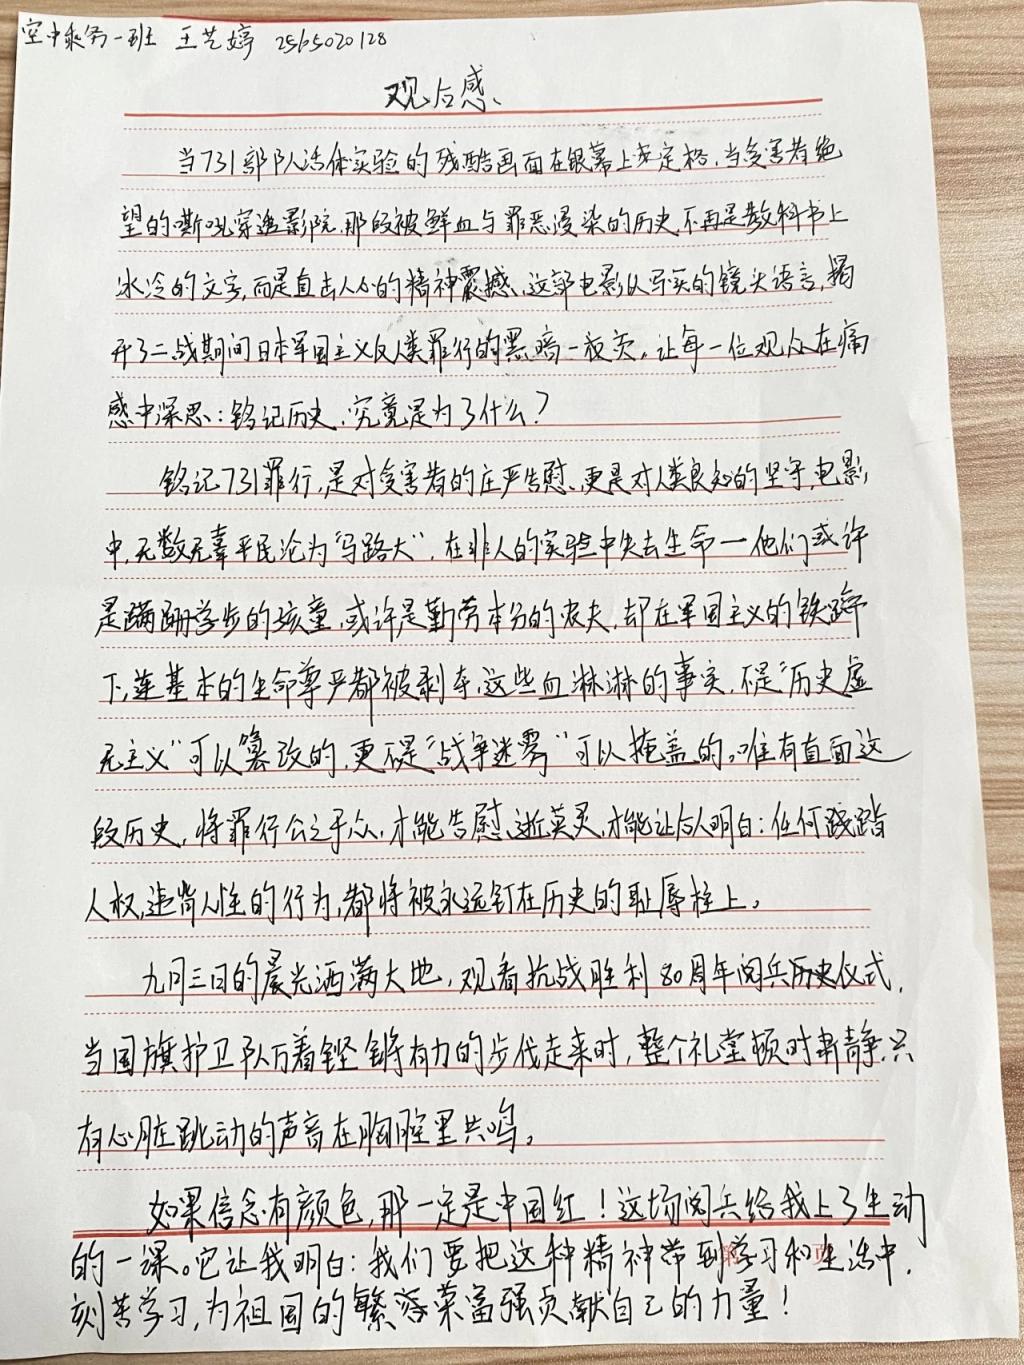 空中乘务一班 王艺婷 2565020128
观后感
当731部队活体实验的残酷画面在银幕上定格,当受害者绝
望的嘶吼穿透影院,那段被鲜血与罪恶浸染的历史,不再是教科书上
冰冷的文字,而是直击人心的精神震撼、这部电影以写实的镜头语言,揭
开了二战期间日本军国主义反人类罪行的黑暗一页,让每一位观众在痛
感中深思:铭记历史,究竟是为了什么?
铭记731罪行,是对受害者的庄严告慰、更是对人类良知的坚守,电影
中,无数无辜平民沦为“马路大”,在非人的实验中失去生命一他们或许
是蹒跚学步的孩童,或许是勤劳本分的农夫,却在军国主义的铁蹄
下,连基本的生命尊严都被剥夺,这些血淋淋的事实,不是“历史虚
无主义”可以篡改的,更不是“战争迷雾”可以掩盖的。唯有直面这
段历史,将罪行公之于众,才能告慰逝英灵,才能让后人明白:任何践踏
人权,违背人性的行为,都将被永远钉在历史的耻辱柱上。
九月三日的晨光洒满大地,观看抗战胜利80周年阅兵仪式,
当国旗护卫队万着铿锵有力的步伐走来时,整个礼堂顿时肃静,只
有心脏跳动的声音在胸腔里共鸣。
如果信念有颜色,那一定是中国红!这场阅兵给我上了生动
的一课。它让我明白:我们要把这种精神带到学习和生活中,
刻苦学习,为祖国的繁荣富强贡献自己的力量!